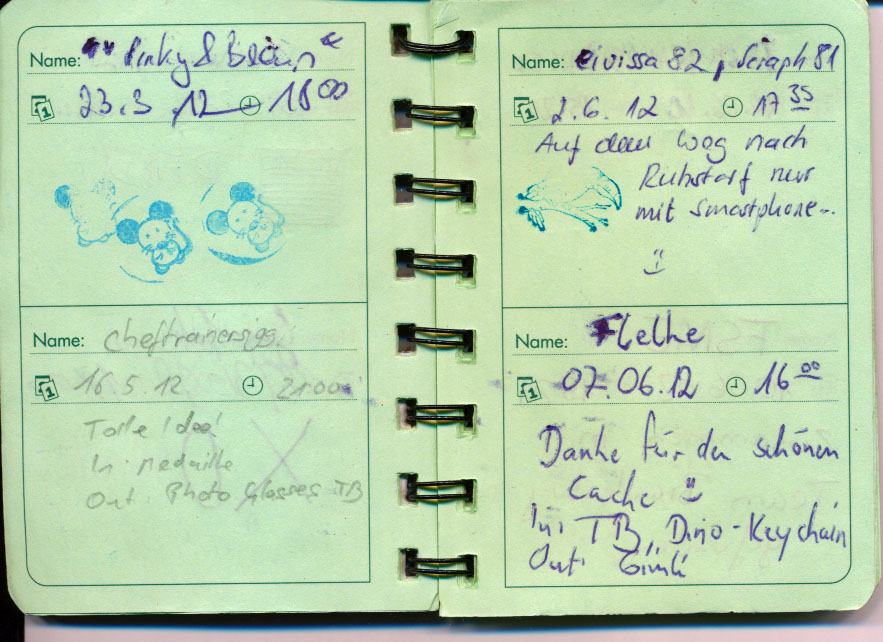 Name: "Pinky & Brain"
23.3.12 18 00
Name: cheftrainersigg
16.5.12 21:00
Tolle Idee!
In: Medaille
Out: Photo Glasses TB
Name: eivissa82, Seraph81
2.6.12 17 35
Auf dem Weg nach
Ruhstorf nur
mit Smartphone...
Name: Flelhe
07.06.12 16 00
Danke für den schönen
Cache
In: TB, Dino-Keychain
Out: Gimli